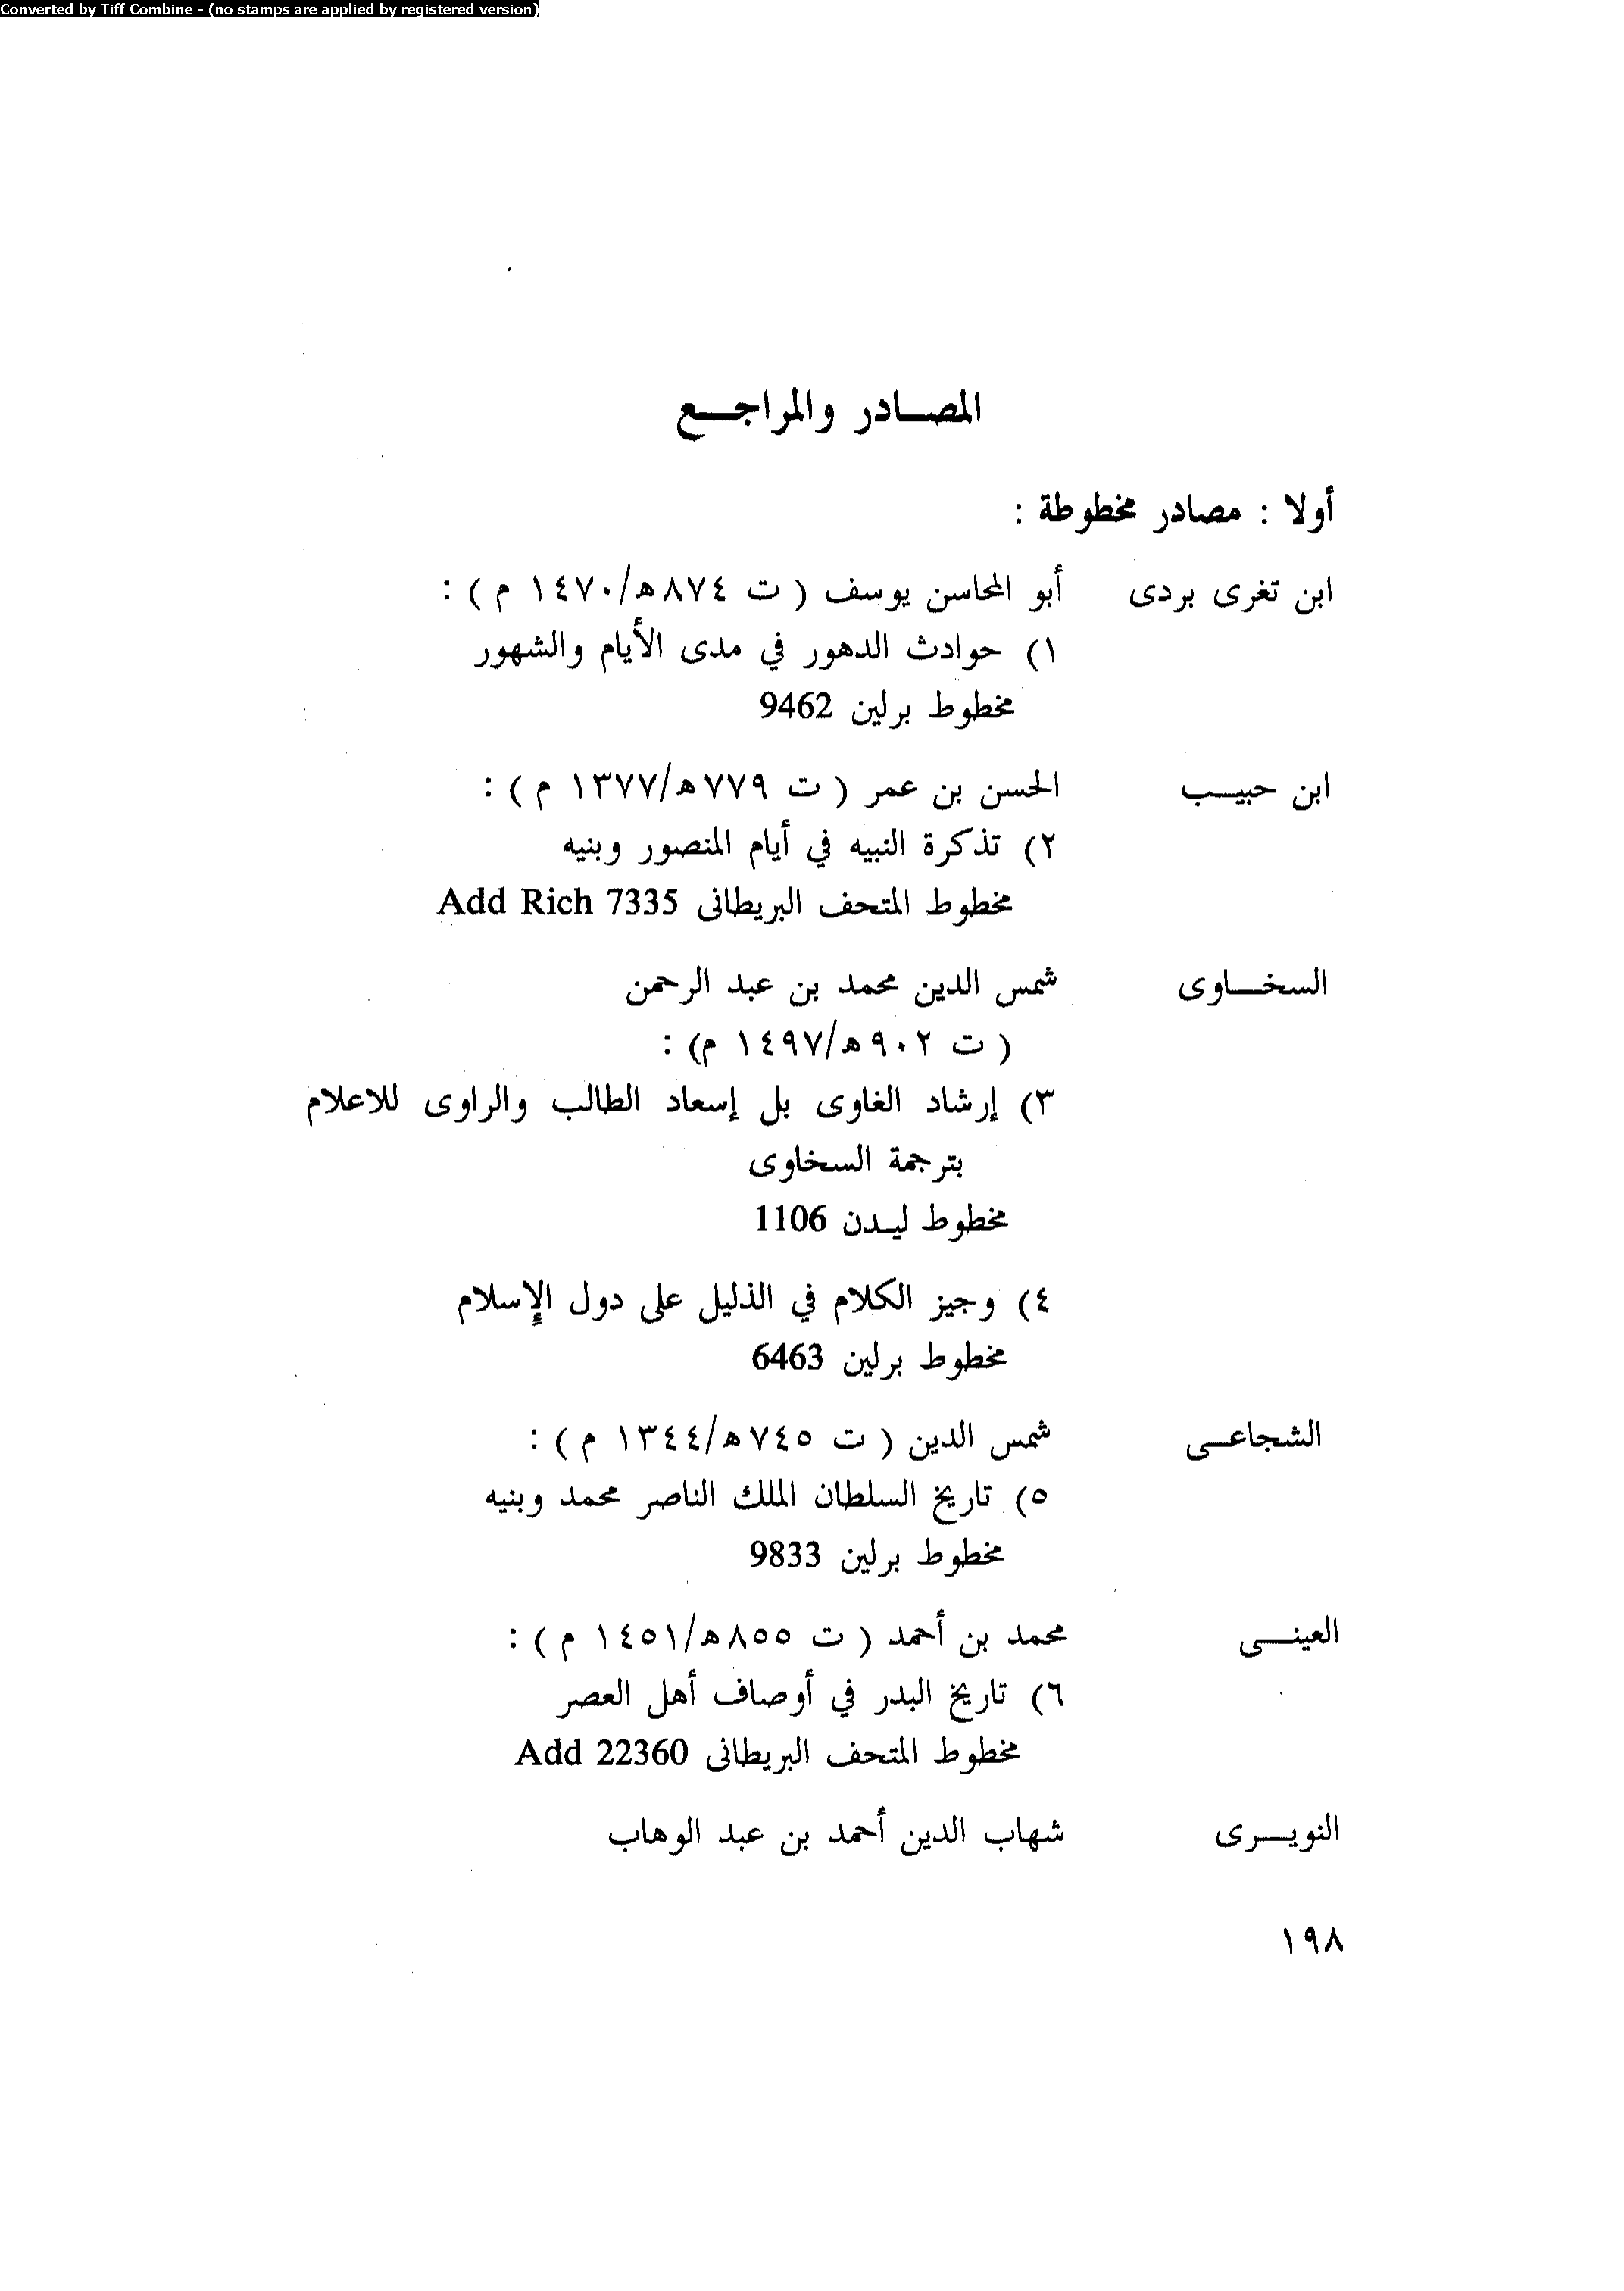 Converted by Tiff Combine - (no stamps are applied by registered version)
المصادر والمراجع
أولا : مصادر مخطوطة :
ابن تغرى بردى أبو المحاسن يوسف ( ت ٨٧٤هـ/١٤٧٠ م ) :
١) حوادث الدهور في مدى الأيام والشهور
مخطوط برلين 9462
ابن حبيب الحسن بن عمر ( ت ٧٧٩هـ/١٣٧٧ م ) :
٢) تذكرة النبيه في أيام المنصور وبنيه
مخطوط المتحف البريطانى Add Rich 7335
السخاوى شمس الدين محمد بن عبد الرحمن
( ت ٩٠٢هـ/١٤٩٧ م) :
٣) إرشاد الغاوى بل إسعاد الطالب والراوى للاعلام
بترجمة السخاوى
مخطوط ليدن 1106
٤) وجيز الكلام في الذليل على دول الإسلام
مخطوط برلين 6463
الشجاعى شمس الدين ( ت ٧٤٥هـ/١٣٤٤ م ) :
٥) تاريخ السلطان الملك الناصر محمد وبنيه
مخطوط برلين 9833
العينى محمد بن أحمد ( ت ٨٥٥هـ/١٤٥١ م ) :
٦) تاريخ البدر في أوصاف أهل العصر
مخطوط المتحف البريطانى Add 22360
النويرى شهاب الدين أحمد بن عبد الوهاب
١٩٨